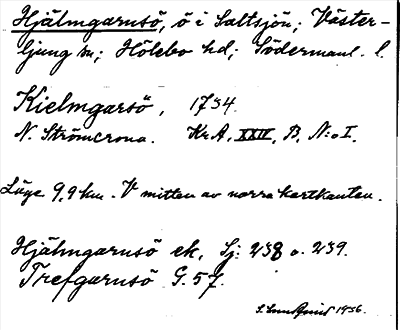 Hjälmgarnsö, ö i Saltsjön; Väster-
ljung sn; Hölebo hd; Södermanl. l.
Kielmgarsö, 1734.
N. Strömcrona. Kr.A. XXIV, B, N:o 1.
Läge 9,9 km. V mitten av norra kartkanten.
Hjälmgarnsö ek, Sj. 238 o. 239.
Trefgarnsö G. 57.
1936.